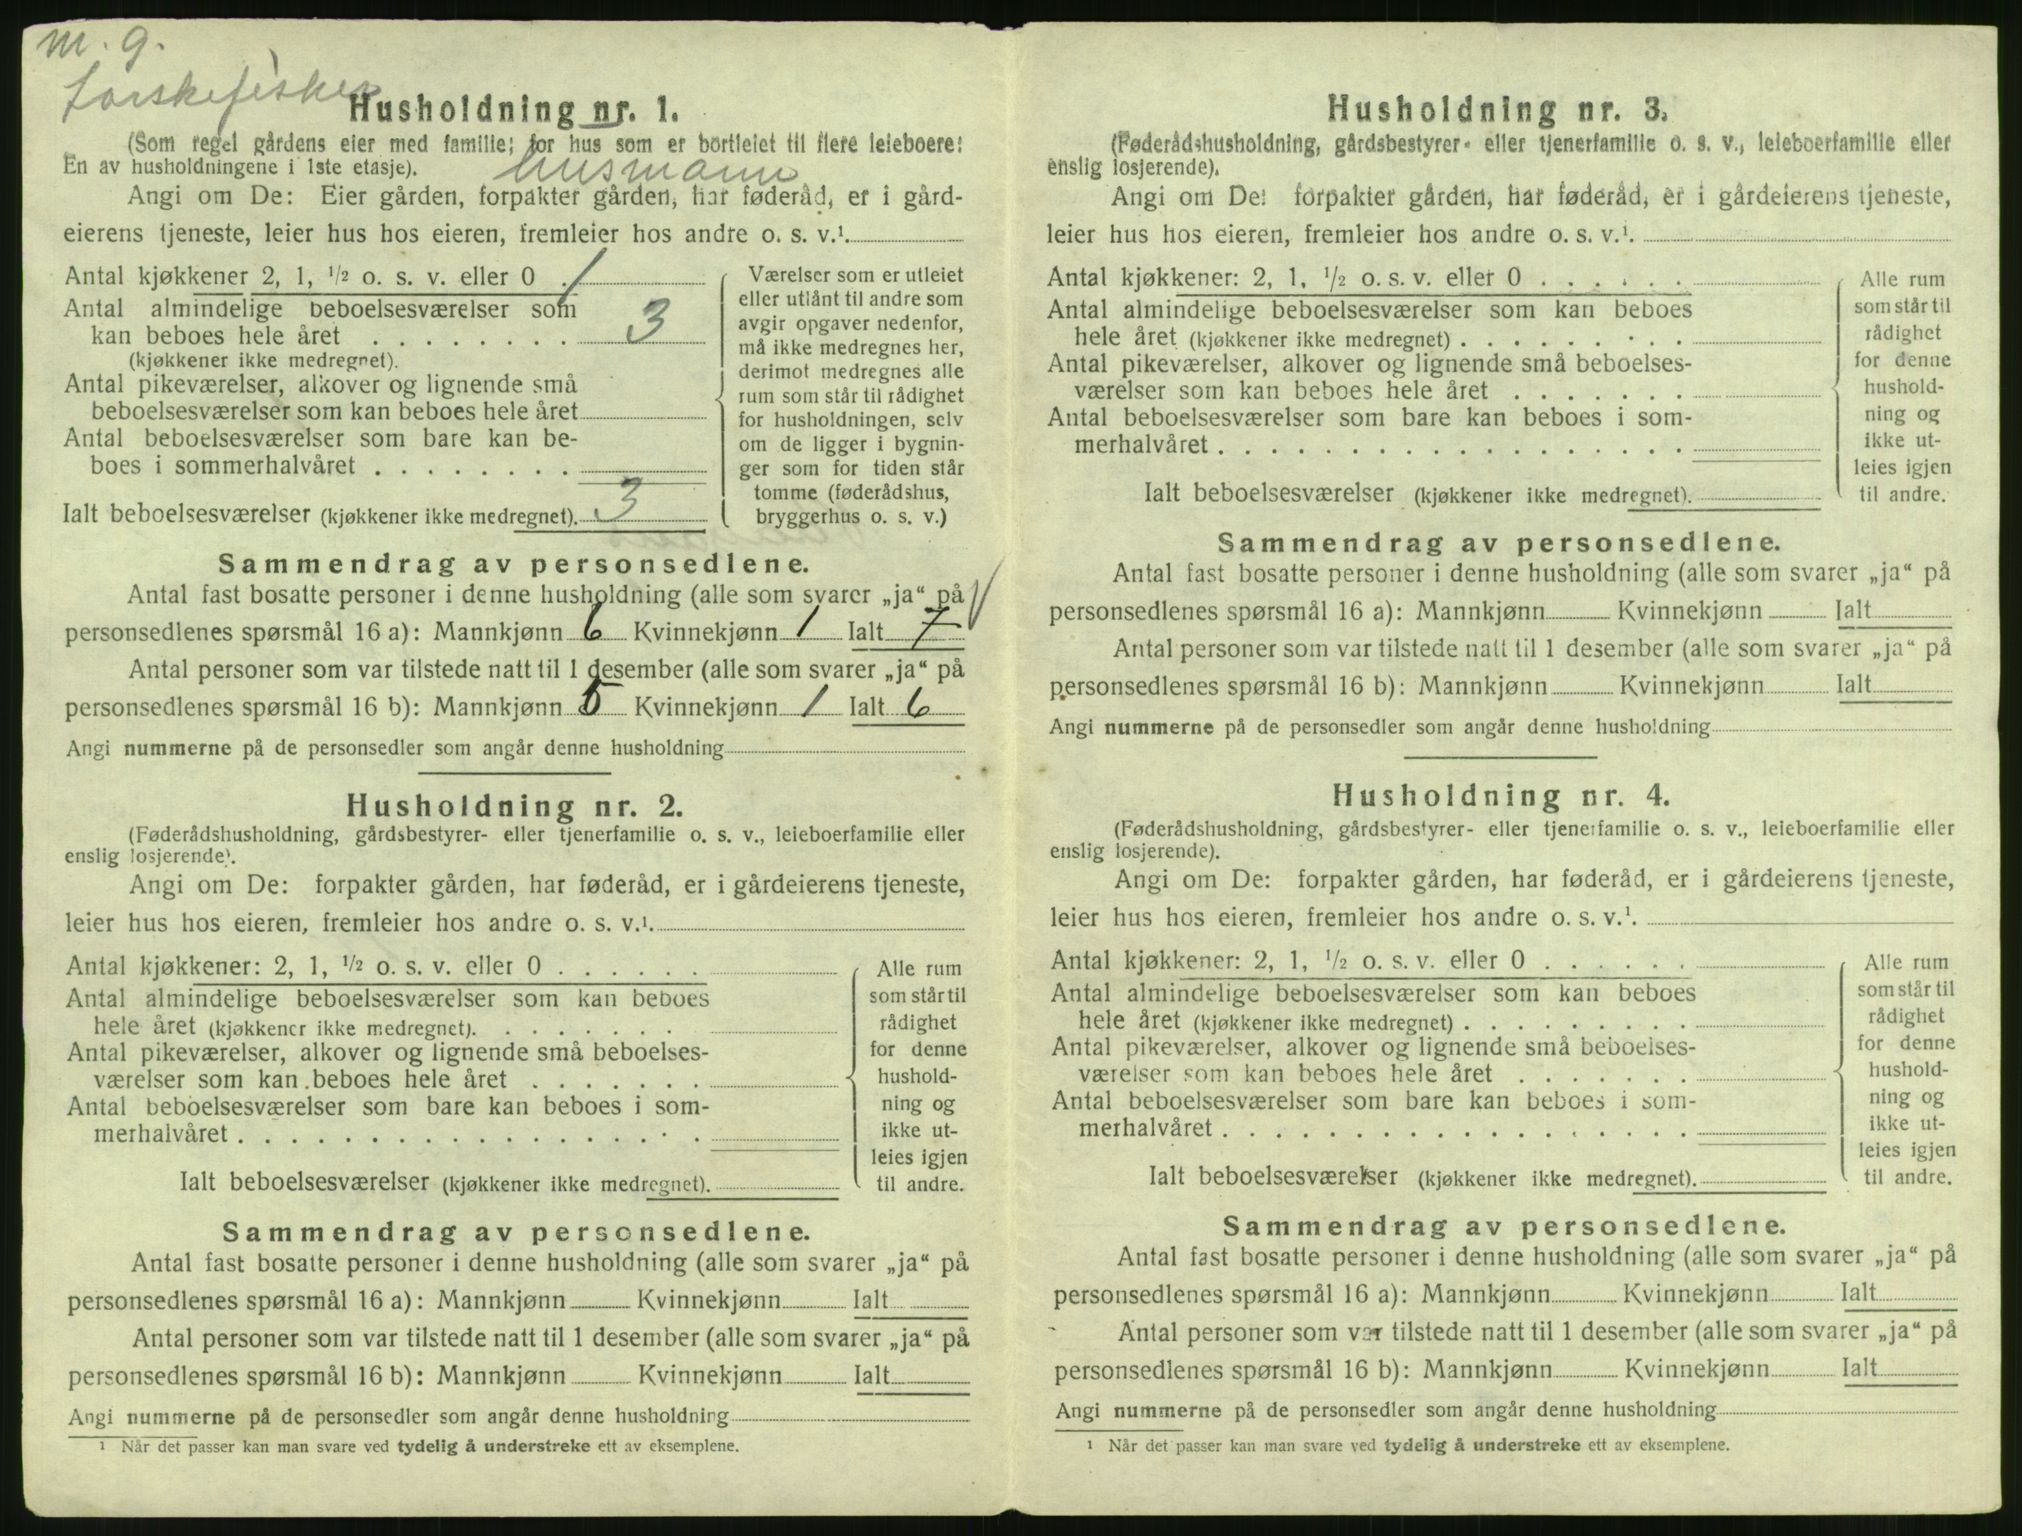 m. g.
torskefisker
Husholdning nr. 1.
(Som regel gårdens eier med familie; for hus som er bortleiet til flere leieboere:
En av husholdningene i 1ste etasje). husmann
Angi om De: Eier gården, forpakter gården, har føderåd, er i gård-
eierens tjeneste, leier hus hos eieren, fremleier hos andre o. s. v.¹.
Antal kjøkkener 2, 1, ½ o. s. v. eller 0 . 1
Antal almindelige beboelsesværelser som
kan beboes hele året . . . . . . . . 3
(kjøkkener ikke medregnet).
Antal pikeværelser, alkover og lignende små
beboelsesværelser som kan beboes hele året
Antal beboelsesværelser som bare kan be-
boes i sommerhalvåret . . . . . . . .
Ialt beboelsesværelser (kjøkkener ikke medregnet). 3
Værelser som er utleiet
eller utlånt til andre som
avgir opgaver nedenfor,
må ikke medregnes her,
derimot medregnes alle
rum som står til rådighet
for husholdningen, selv
om de ligger i bygnin-
ger som for tiden står
tomme (føderådshus,
bryggerhus o. s. v.)
Sammendrag av personsedlene.
Antal fast bosatte personer i denne husholdning (alle som svarer „ja“ på
personsedlenes spørsmål 16 a): Mannkjønn 6 Kvinnekjønn 1 Ialt 7
Antal personer som var tilstede natt til 1 desember (alle som svarer „ja“ på
personsedlenes spørsmål 16 b): Mannkjønn 5 Kvinnekjønn 1 Ialt 6
Angi nummerne på de personsedler som angår denne husholdning
Husholdning nr. 2.
(Føderådshusholdning, gårdsbestyrer- eller tjenerfamilie o. s. v., leieboerfamilie eller
enslig losjerende).
Angi om De: forpakter gården, har føderåd, er i gårdeierens tjeneste,
leier hus hos eieren, fremleier hos andre o. s. v.¹.
Antal kjøkkener: 2, 1, ½ o. s. v. eller 0 . . . . . .
Antal almindelige beboelsesværelser som kan beboes
hele året (kjøkkener ikke medregnet). . . . . . . .
Antal pikeværelser, alkover og lignende små beboelses-
værelser som kan beboes hele året . . . . . . .
Antal beboelsesværelser som bare kan beboes i som-
merhalvåret . . . . . . . . . . . . . . . . . .
Ialt beboelsesværelser (kjøkkener ikke medregnet).
Alle rum
som står til
rådighet
for denne
hushold-
ning og
ikke ut-
leies igjen
til andre.
Sammendrag av personsedlene.
Antal fast bosatte personer i denne husholdning (alle som svarer „ja“ på
personsedlenes spørsmål 16 a): Mannkjønn Kvinnekjønn Ialt
Antal personer som var tilstede natt til 1 desember (alle som svarer „ja“ på
personsedlenes spørsmål 16 b): Mannkjønn Kvinnekjønn Ialt
Angi nummerne på de personsedler som angår denne husholdning
¹ Når det passer kan man svare ved tydelig å understreke ett av eksemplene.
Husholdning nr. 3.
(Føderådshusholdning, gårdsbestyrer- eller tjenerfamilie o. s. v., leieboerfamilie eller
enslig losjerende).
Angi om De: forpakter gården, har føderåd, er i gårdeierens tjeneste,
leier hus hos eieren, fremleier hos andre o. s. v.¹.
Antal kjøkkener: 2, 1, ½ o. s. v. eller 0 . . . . . .
Antal almindelige beboelsesværelser som kan beboes
hele året (kjøkkener ikke medregnet) . . . . . . . . .
Antal pikeværelser, alkover og lignende små beboelses-
værelser som kan beboes hele året . . . . . . .
Antal beboelsesværelser som bare kan beboes i som-
merhalvåret . . . . . . . . . . . . . . . . . .
Ialt beboelsesværelser (kjøkkener ikke medregnet).
Alle rum
som står til
rådighet
for denne
hushold-
ning og
ikke ut-
leies igjen
til andre.
Sammendrag av personsedlene.
Antal fast bosatte personer i denne husholdning (alle som svarer „ja“ på
personsedlenes spørsmål 16 a): Mannkjønn Kvinnekjønn Ialt
Antal personer som var tilstede natt til 1 desember (alle som svarer „ja“ på
personsedlenes spørsmål 16 b): Mannkjønn Kvinnekjønn Ialt
Angi nummerne på de personsedler som angår denne husholdning
Husholdning nr. 4.
(Føderådshusholdning, gårdsbestyrer- eller tjenerfamilie o. s. v., leieboerfamilie eller
enslig losjerende).
Angi om De: forpakter gården, har føderåd, er i gårdeierens tjeneste,
leier hus hos eieren, fremleier hos andre o. s. v.¹.
Antal kjøkkener: 2, 1, ½ o. s. v. eller 0 . . . . . .
Antal almindelige beboelsesværelser som kan beboes
hele året (kjøkkener ikke medregnet) . . . . . . . . .
Antal pikeværelser, alkover og lignende små beboelses-
værelser som kan beboes hele året . . . . . . .
Antal beboelsesværelser som bare kan beboes i som-
merhalvåret . . . . . . . . . . . . . . . . . .
Ialt beboelsesværelser (kjøkkener ikke medregnet).
Alle rum
som står til
rådighet
for denne
hushold-
ning og
ikke ut-
leies igjen
til andre.
Sammendrag av personsedlene.
Antal fast bosatte personer i denne husholdning (alle som svarer „ja“ på
personsedlenes spørsmål 16 a): Mannkjønn Kvinnekjønn Ialt
Antal personer som var tilstede natt til 1 desember (alle som svarer „ja“ på
personsedlenes spørsmål 16 b): Mannkjønn Kvinnekjønn Ialt
Angi nummerne på de personsedler som angår denne husholdning
¹ Når det passer kan man svare ved tydelig å understreke ett av eksemplene.